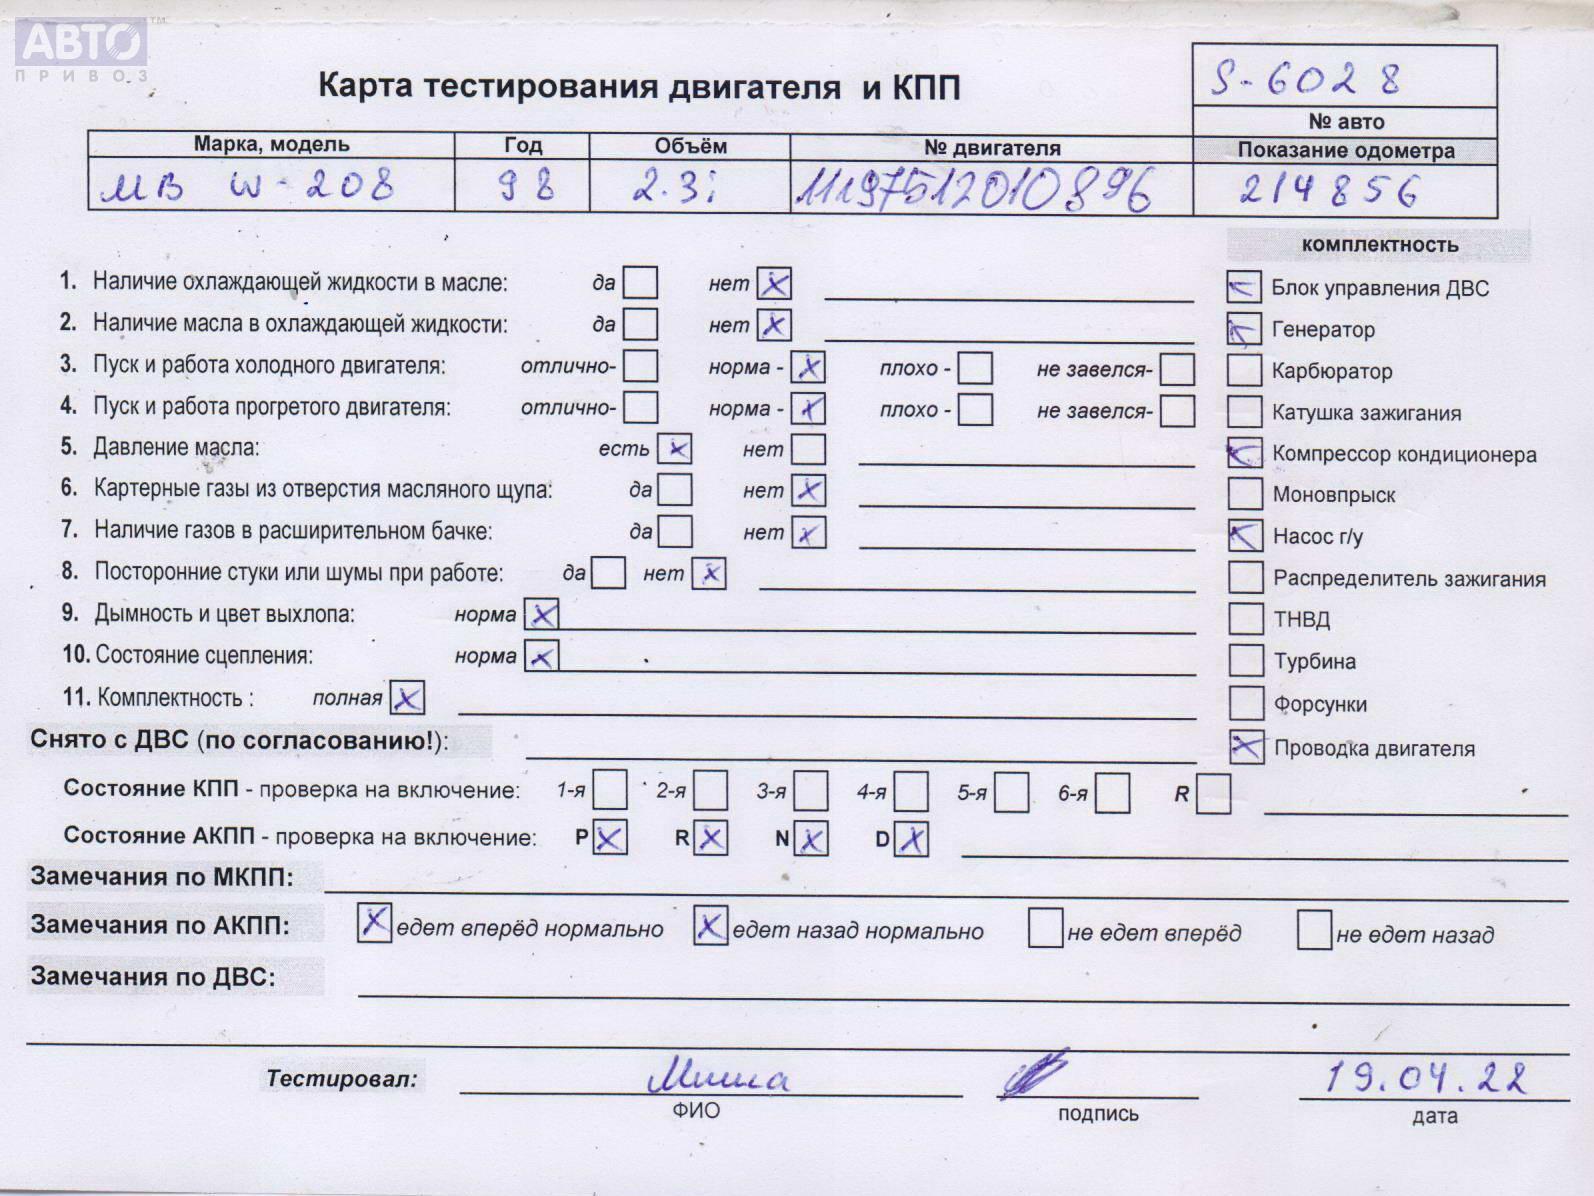 АВТО ТМ
ПРИВОЗ
Карта тестирования двигателя и КПП
S-6028
№ авто
Марка, модель Год Объём № двигателя Показание одометра
МВ W-208 98 2.3i 11197512010896 214856
комплектность
1. Наличие охлаждающей жидкости в масле: да нет Блок управления ДВС
2. Наличие масла в охлаждающей жидкости: да нет Генератор
3. Пуск и работа холодного двигателя: отлично- норма - плохо - не завелся- Карбюратор
4. Пуск и работа прогретого двигателя: отлично- норма - плохо - не завелся- Катушка зажигания
5. Давление масла: есть нет Компрессор кондиционера
6. Картерные газы из отверстия масляного щупа: да нет Моновпрыск
7. Наличие газов в расширительном бачке: да нет Насос г/у
8. Посторонние стуки или шумы при работе: да нет Распределитель зажигания
9. Дымность и цвет выхлопа: норма ТНВД
10. Состояние сцепления: норма Турбина
11. Комплектность : полная Форсунки
Снято с ДВС (по согласованию!): Проводка двигателя
Состояние КПП - проверка на включение: 1-я 2-я 3-я 4-я 5-я 6-я R
Состояние АКПП - проверка на включение: P R N D
Замечания по МКПП:
Замечания по АКПП: едет вперёд нормально едет назад нормально не едет вперёд не едет назад
Замечания по ДВС:
Тестировал: Миша 19.04.22
ФИО подпись дата